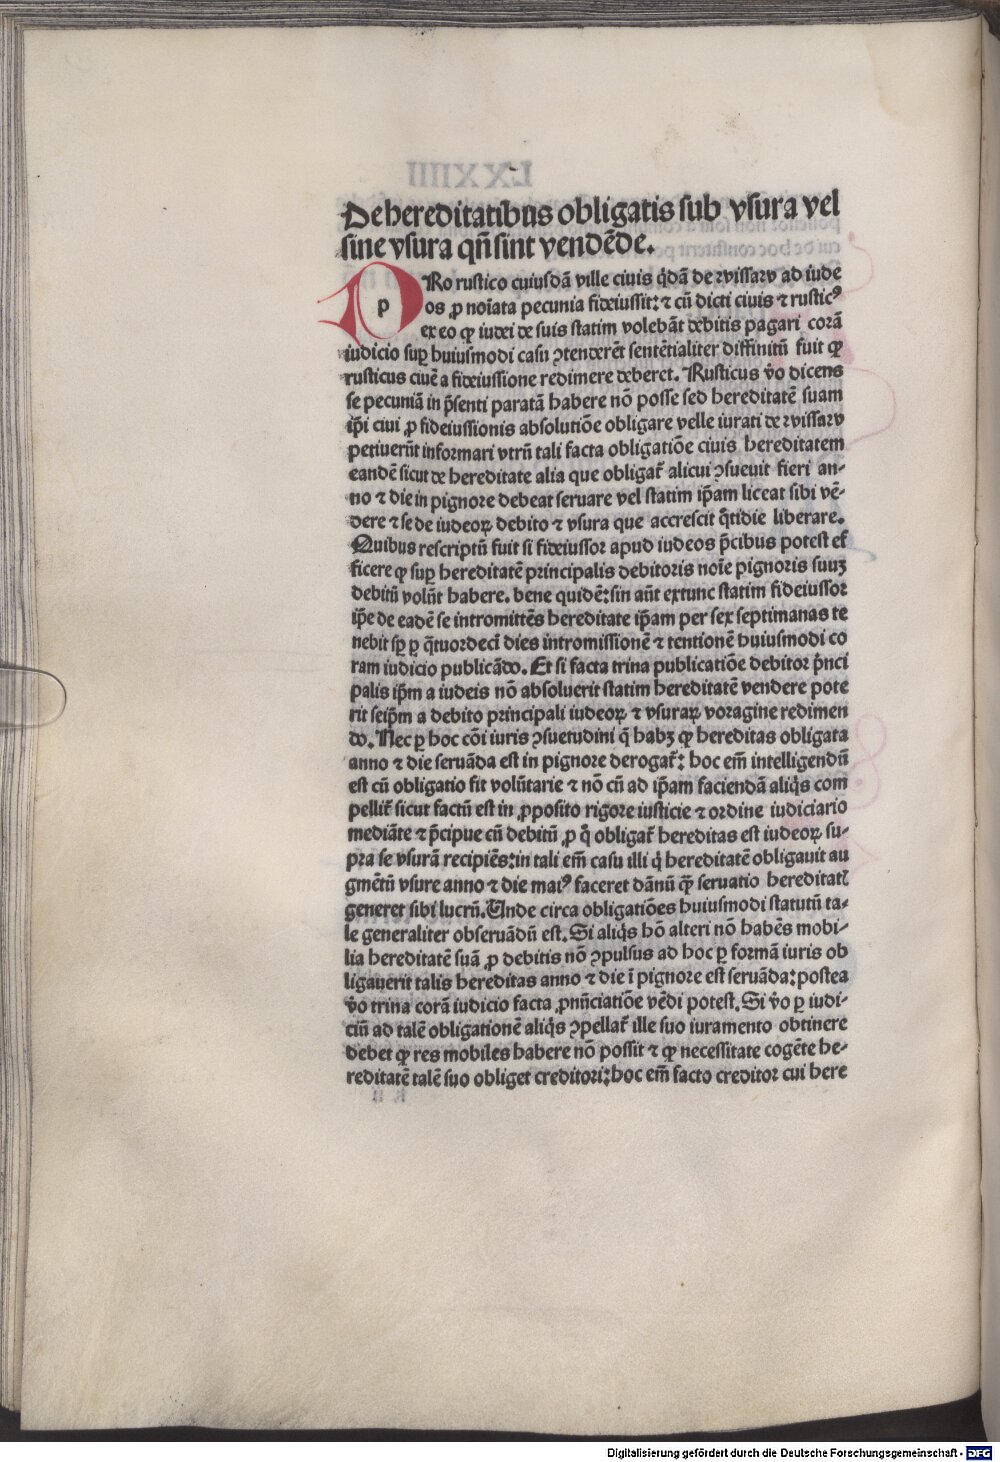 De hereditatibus obligatis sub vsura vel
sine vsura qñ sint vendēde.
PRo rustico cuiusdā ville ciuis q̇dā de rvissaw ad iude
os ꝓ noīata pecunia fideiussit: ⁊ cū dicti ciuis ⁊ rusticꝰ
ex eo ꝙ iudei de suis statim volebāt debitis pagari corā
iudicio suꝑ huiusmodi casu ꝯtenderēt sentētialiter diffinitū fuit ꝙ
rusticus ciuē a fideiussione redimere deberet. Rusticus v̄o dicens
se pecuniā in p̄senti paratā habere nō posse sed hereditatē suam
ip̄i ciui ꝓ fideiussionis absolutiōe obligare velle iurati de rvissaw
petiuerūt informari vtrū tali facta obligatiōe ciuis hereditatem
eandē sicut de hereditate alia que obligat̄ alicui ꝯsueuit fieri an-
no ⁊ die in pignore debeat seruare vel statim ip̄am liceat sibi vē-
dere ⁊ se de iudeoꝝ debito ⁊ vsura que accrescit q̄tidie liberare.
Quibus rescriptū fuit si fideiussor apud iudeos p̄cibus potest ef
ficere ꝙ suꝑ hereditatē principalis debitoris noīe pignoris suuꝫ
debitū volūt habere. bene quidē: sin aūt extunc statim fideiussor
ip̄e de eadē se intromittēs hereditate ip̄am per sex septimanas te
nebit sꝑ ꝑ q̄tuordecī dies intromissionē ⁊ tentionē huiusmodi co
ram iudicio publicādo. Et si facta trina publicatiōe debitor p̄nci
palis ip̄m a iudeis nō absoluerit statim hereditatē vendere pote
rit seip̄m a debito principali iudeoꝝ ⁊ vsuraꝝ voragine redimen
do. Nec ꝑ hoc cōi iuris ꝯsuetudini q̄ habꝫ ꝙ hereditas obligata
anno ⁊ die seruāda est in pignore derogat̄: hoc em̄ intelligendū
est cū obligatio fit volūtarie ⁊ nō cū ad ip̄am faciendā aliq̇s com
pellit̄ sicut factū est in ꝓposito rigore iusticie ⁊ ordine iudiciario
mediāte ⁊ p̄cipue cū debitū ꝓ q̊ obligat̄ hereditas est iudeoꝝ su-
pra se vsurā recipiēs: in tali em̄ casu illi q̇ hereditatē obligauit au
gmētū vsure anno ⁊ die maiꝰ faceret dānū q̄ꝫ seruatio hereditatꝭ
generet sibi lucrū. Unde circa obligatiōes huiusmodi statutū ta-
le generaliter obseruādū est. Si aliq̇s hō alteri nō habēs mobi-
lia hereditatē suā ꝓ debitis nō ꝯpulsus ad hoc ꝑ formā iuris ob
ligauerit talis hereditas anno ⁊ die ī pignore est seruāda: postea
v̄o trina corā iudicio facta ꝓnūciatiōe vēdi potest. Si v̄o ꝑ iudi-
ciū ad talē obligationē aliq̇s ꝯpellat̄ ille suo iuramento obtinere
debet ꝙ res mobiles habere nō possit ⁊ ꝙ necessitate cogēte he-
reditatē talē suo obliget creditori: hoc em̄ facto creditor cui here
Digitalisierung gefördert durch die Deutsche Forschungsgemeinschaft - DFG